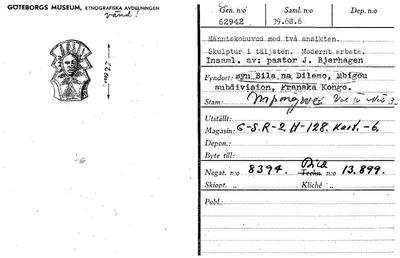 GÖTEBORGS MUSEUM, ETNOGRAFISKA AVDELNINGEN
vänd!
Gen. n:o
62942
Saml. n:o
39.68.6
Dep. n:o
Människohuvud med två ansikten.
Skulptur i täljsten. Modernt arbete.
Insaml. av: pastor J. Bjerhagen
Fyndort: syn Bila na Dilemo, Mbigou
subdivision, Franska Kongo.
Stam:
Utställt:
Magasin: 6-S.R-2, H-128. Kart.-6.
Depon.:
Byte till:
Negat. n:o 8394. Bild Techn. n:o 13,899.
Skiopt. „ Kliché „
Publ.: